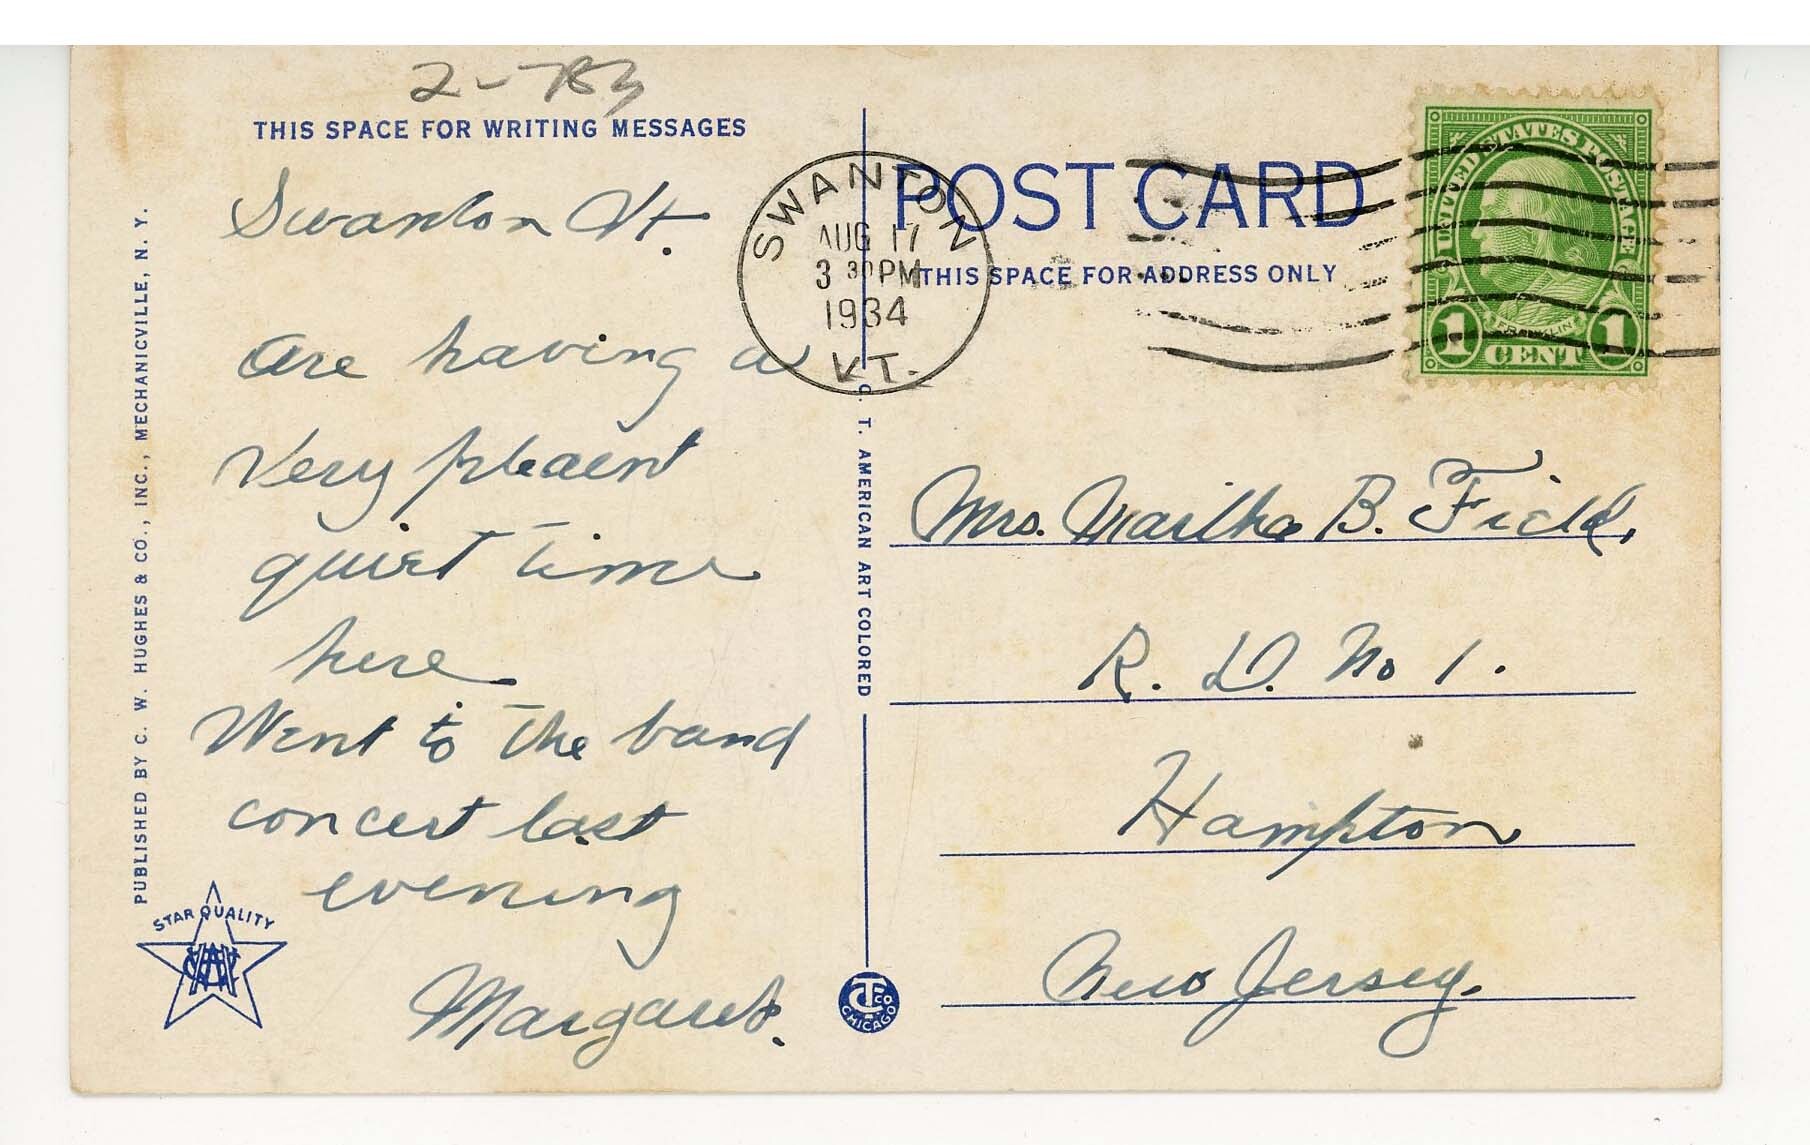 2-783
THIS SPACE FOR WRITING MESSAGES
Swanton Vt.
are having a
very pleaent
quiet time
here
Went to the band
concert last
evening
Margaret.
PUBLISHED BY C. W. HUGHES & CO., INC., MECHANICVILLE, N. Y.
STAR QUALITY
C. T. AMERICAN ART COLORED
CTCO
CHICAGO
SWANTON
AUG 17
3 30 PM
1934
VT.
POST CARD
THIS SPACE FOR ADDRESS ONLY
UNITED STATES POSTAGE
FRANKLIN
1 CENT 1
Mrs. Martha B. Field,
R. D. No 1.
Hampton
New Jersey.